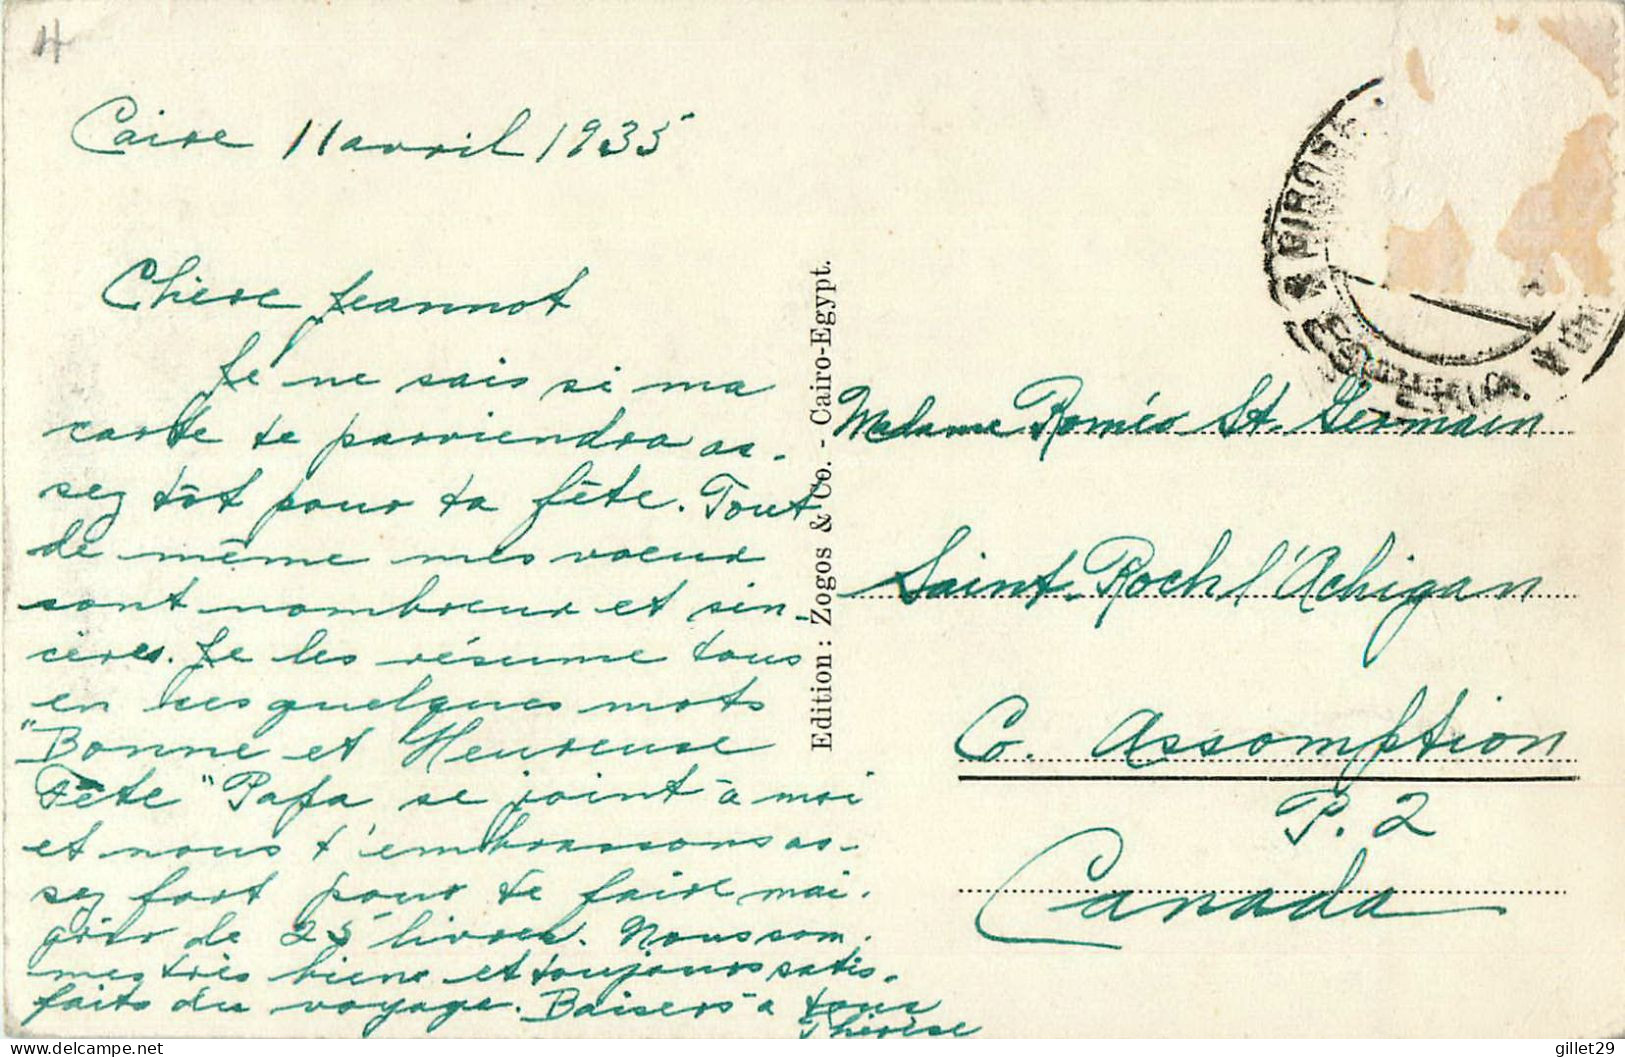 H
Caire 11 avril 1935
Chère Jeannot
Je ne sais si ma
carte te parviendra as-
sez tôt pour ta fête. Tout
de même mes voeux
sont nombreux et sin-
cères. Je les résume tous
en ces quelques mots
"Bonne et Heureuse
Fête" Papa se joint à moi
et nous t'embrassons as-
sez fort pour te faire mai-
grir de 25 livres. Nous som-
mes très biens et toujours satis-
faits du voyage. Baisers à tous
Thérèse
Edition : Zogos & Co. - Cairo-Egypt.
Madame Roméo St. Germain
Saint. Roch l'Achigan
Co. Assomption
P. 2
Canada
gillet29